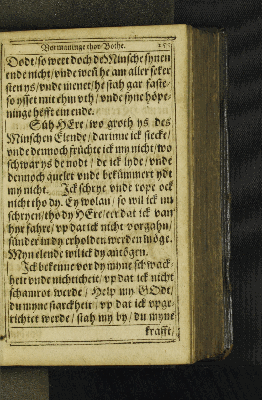 Vormaninge thor Bothe.
Dodt/ so wert doch de Minsche synen
ende nicht/ vnde wen he am aller seker
sten ys/ vnde menet/ he stah gar faste/
so ysset mit ehm vth/ vnde syne höpe-
ninge hefft ein ende.
Süh HEre/ wo groth ys des
Minschen Elende/ darinne ick stecke/
vnde dennoch früchte ick my nicht/ wo
schwar ys de nodt/ de ick lyde/ vnde
dennoch quelet vnde bekümmert ydt
my nicht. Ick schrye vnde rope ock
nicht tho dy. Ey wolan/ so wil ick nu
schryen/ tho dy HEre/ eer dat ick van
hyr fahre/ vp dat ick nicht vorgahn/
sünder in dy erholden werden möge.
Myn elende wil ick dy antögen.
Ick bekenne vor dy myne schwack-
heit vnde nichticheit/ vp dat ick nicht
schamrot werde/ Help my GOdt/
du myne starckheit/ vp dat ick vpge-
richtet werde/ stah my by/ du myne
krafft/